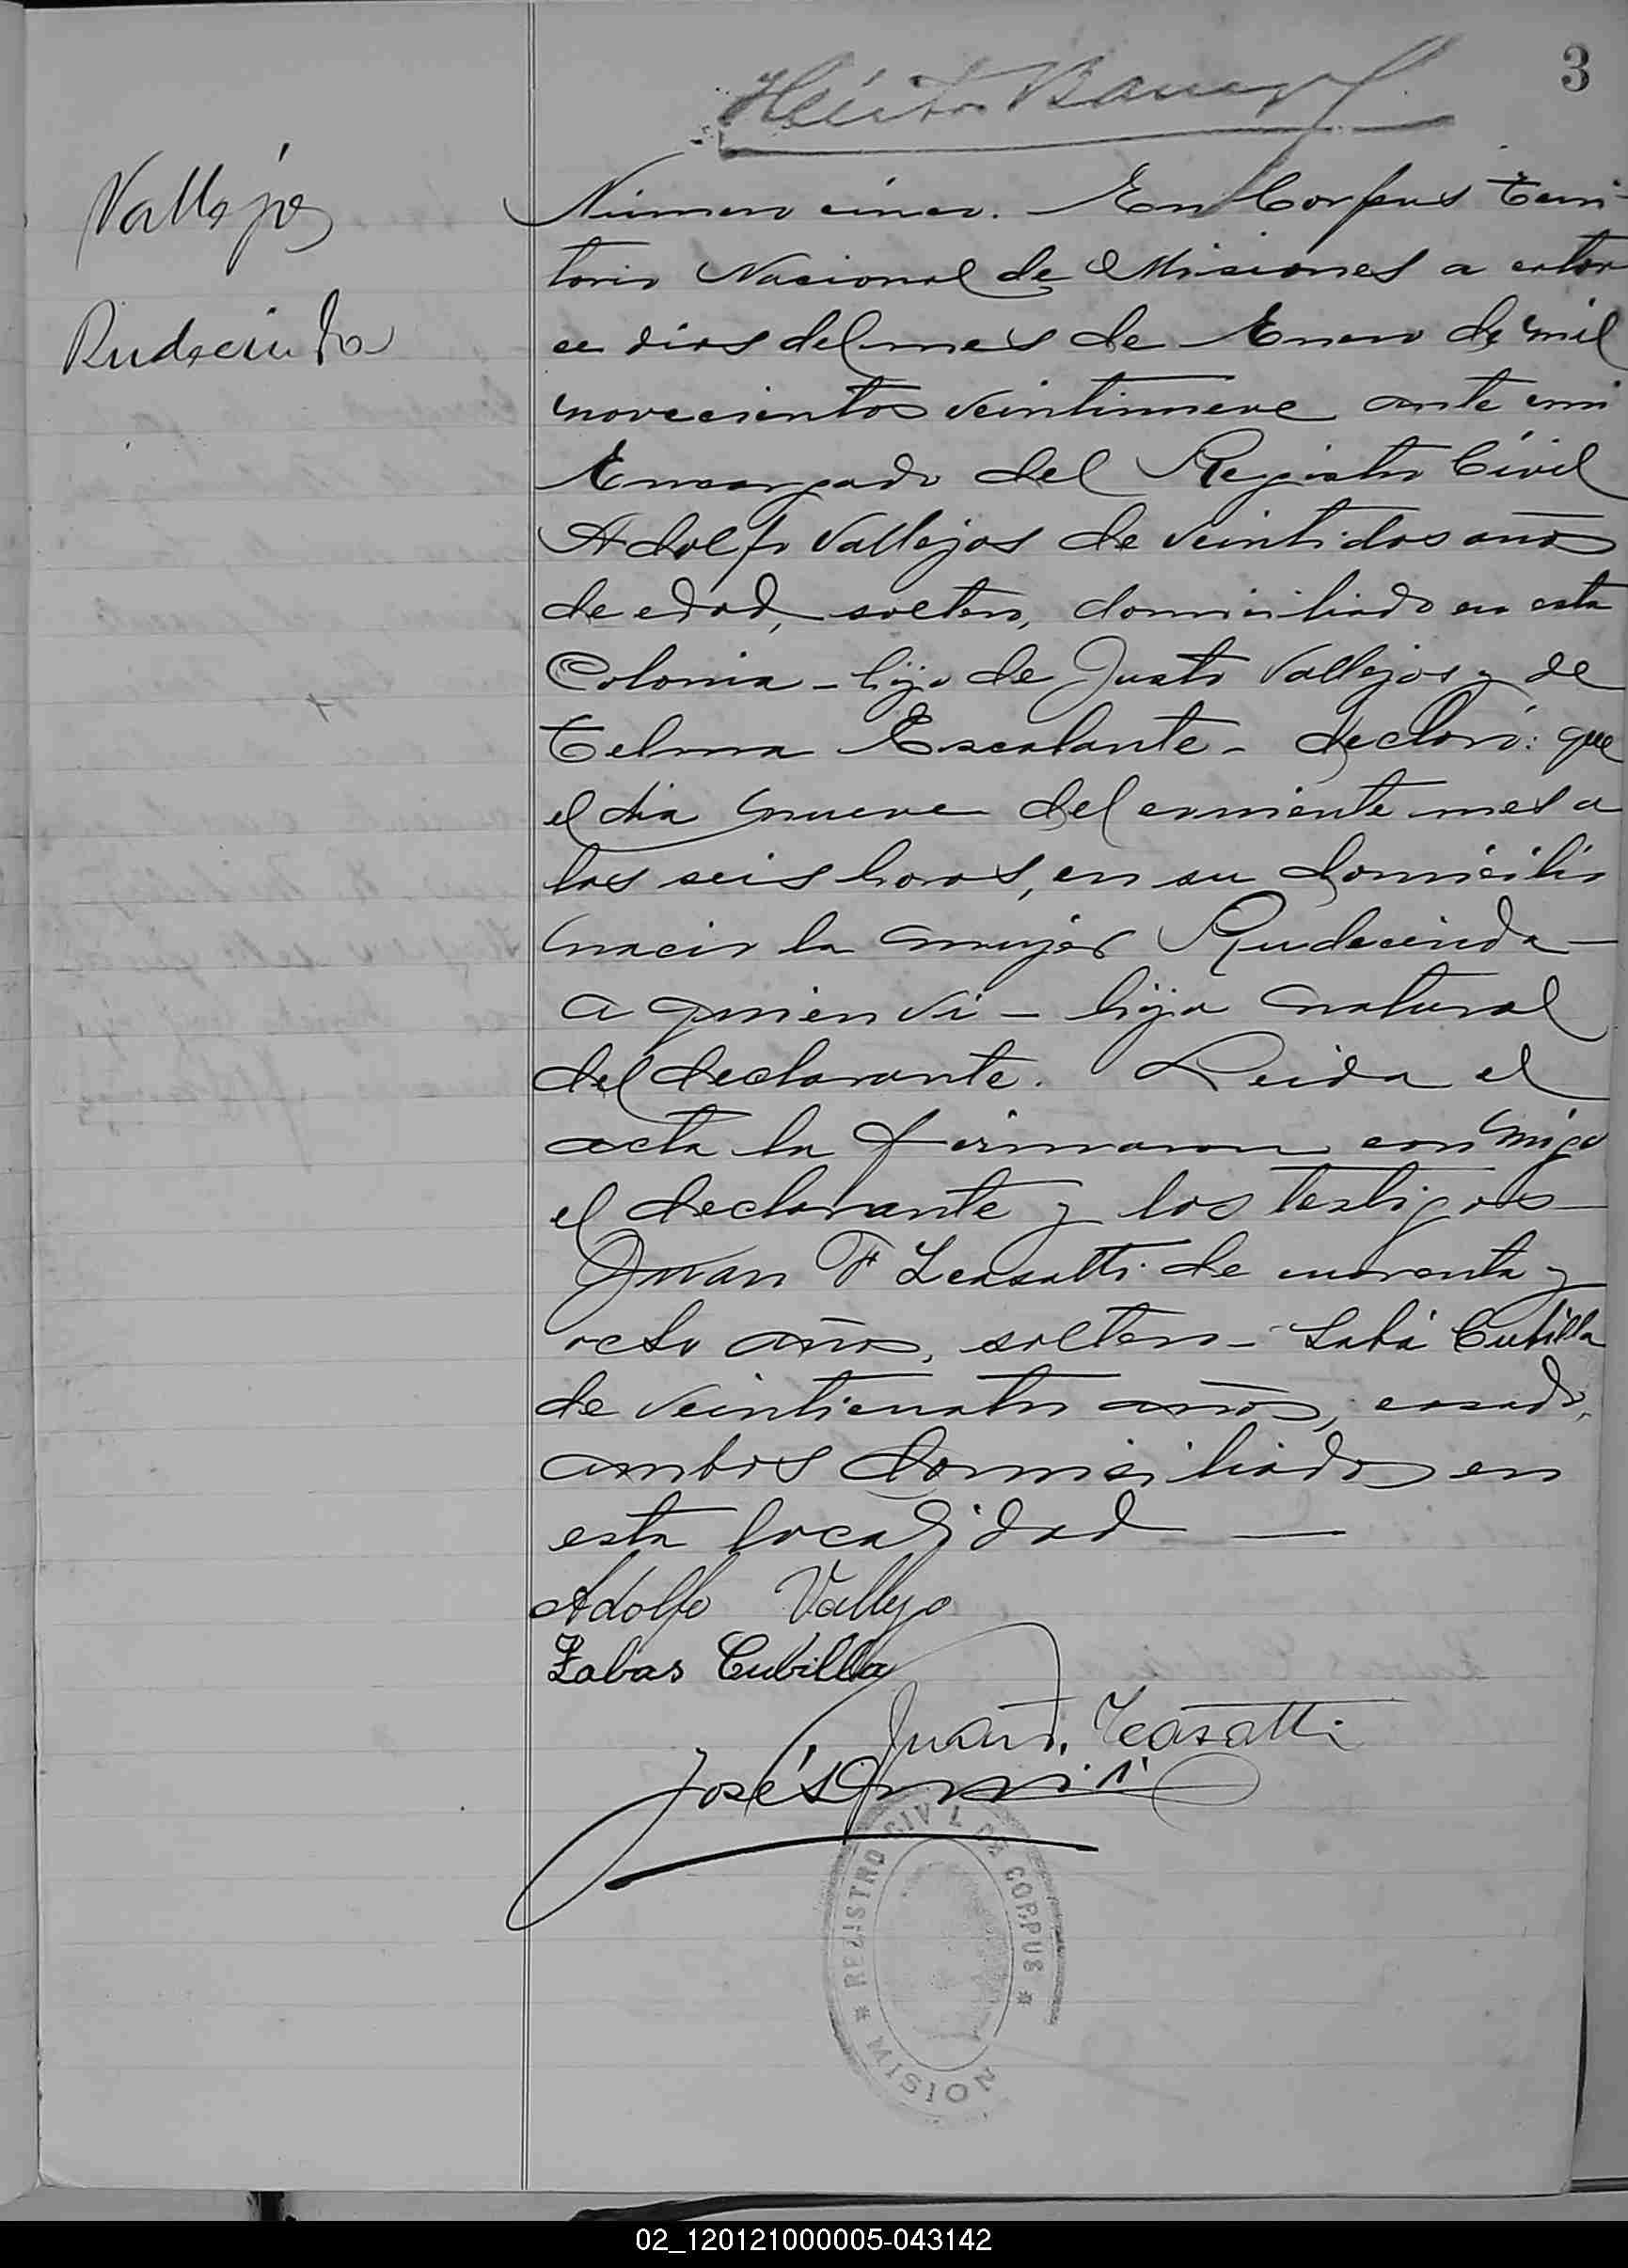 3
Héctor
Vallejos
Rudecinda
Número cinco. En Corpus Terri-
torio Nacional de Misiones a cator
ce dias del mes de Enero de mil
novecientos veintinueve ante mi
Encargado del Registro Civil
Adolfo Vallejos de veintidos años
de edad, soltero, domiciliado en esta
Colonia - hijo de Justo Vallejos y de
Telma Escalante - declaró: que
el dia nueve del corriente mes a
las seis horas, en su domicilio
nacio la mujer Rudecinda -
a quien vi - hija natural
del declarante. Leida el
acta la firmaron conmigo
el declarante y los testigos -
Juan F Leasatti de cuarenta y
ocho años, soltero - Labá Cubilla
de veinticuatro años, casado,
ambos domiciliados en
esta localidad —
Adolfo Vallejo
Zabas Cubilla
Juan F. Leasatti
José S
REGISTRO CIVIL DE CORPUS * MISION *
02_120121000005-043142